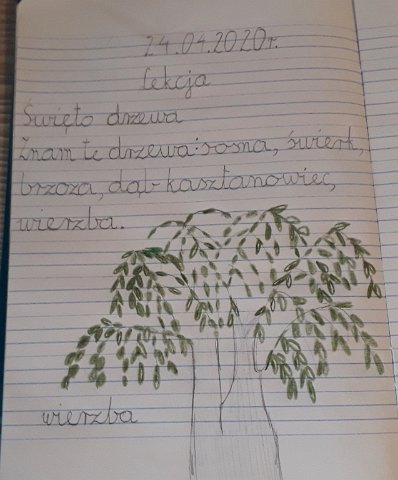 24.04.2020r.
Lekcja
Święto drzewa
Znam te drzewa: sosna, świerk,
brzoza, dąb kasztanowiec,
wierzba.
wierzba